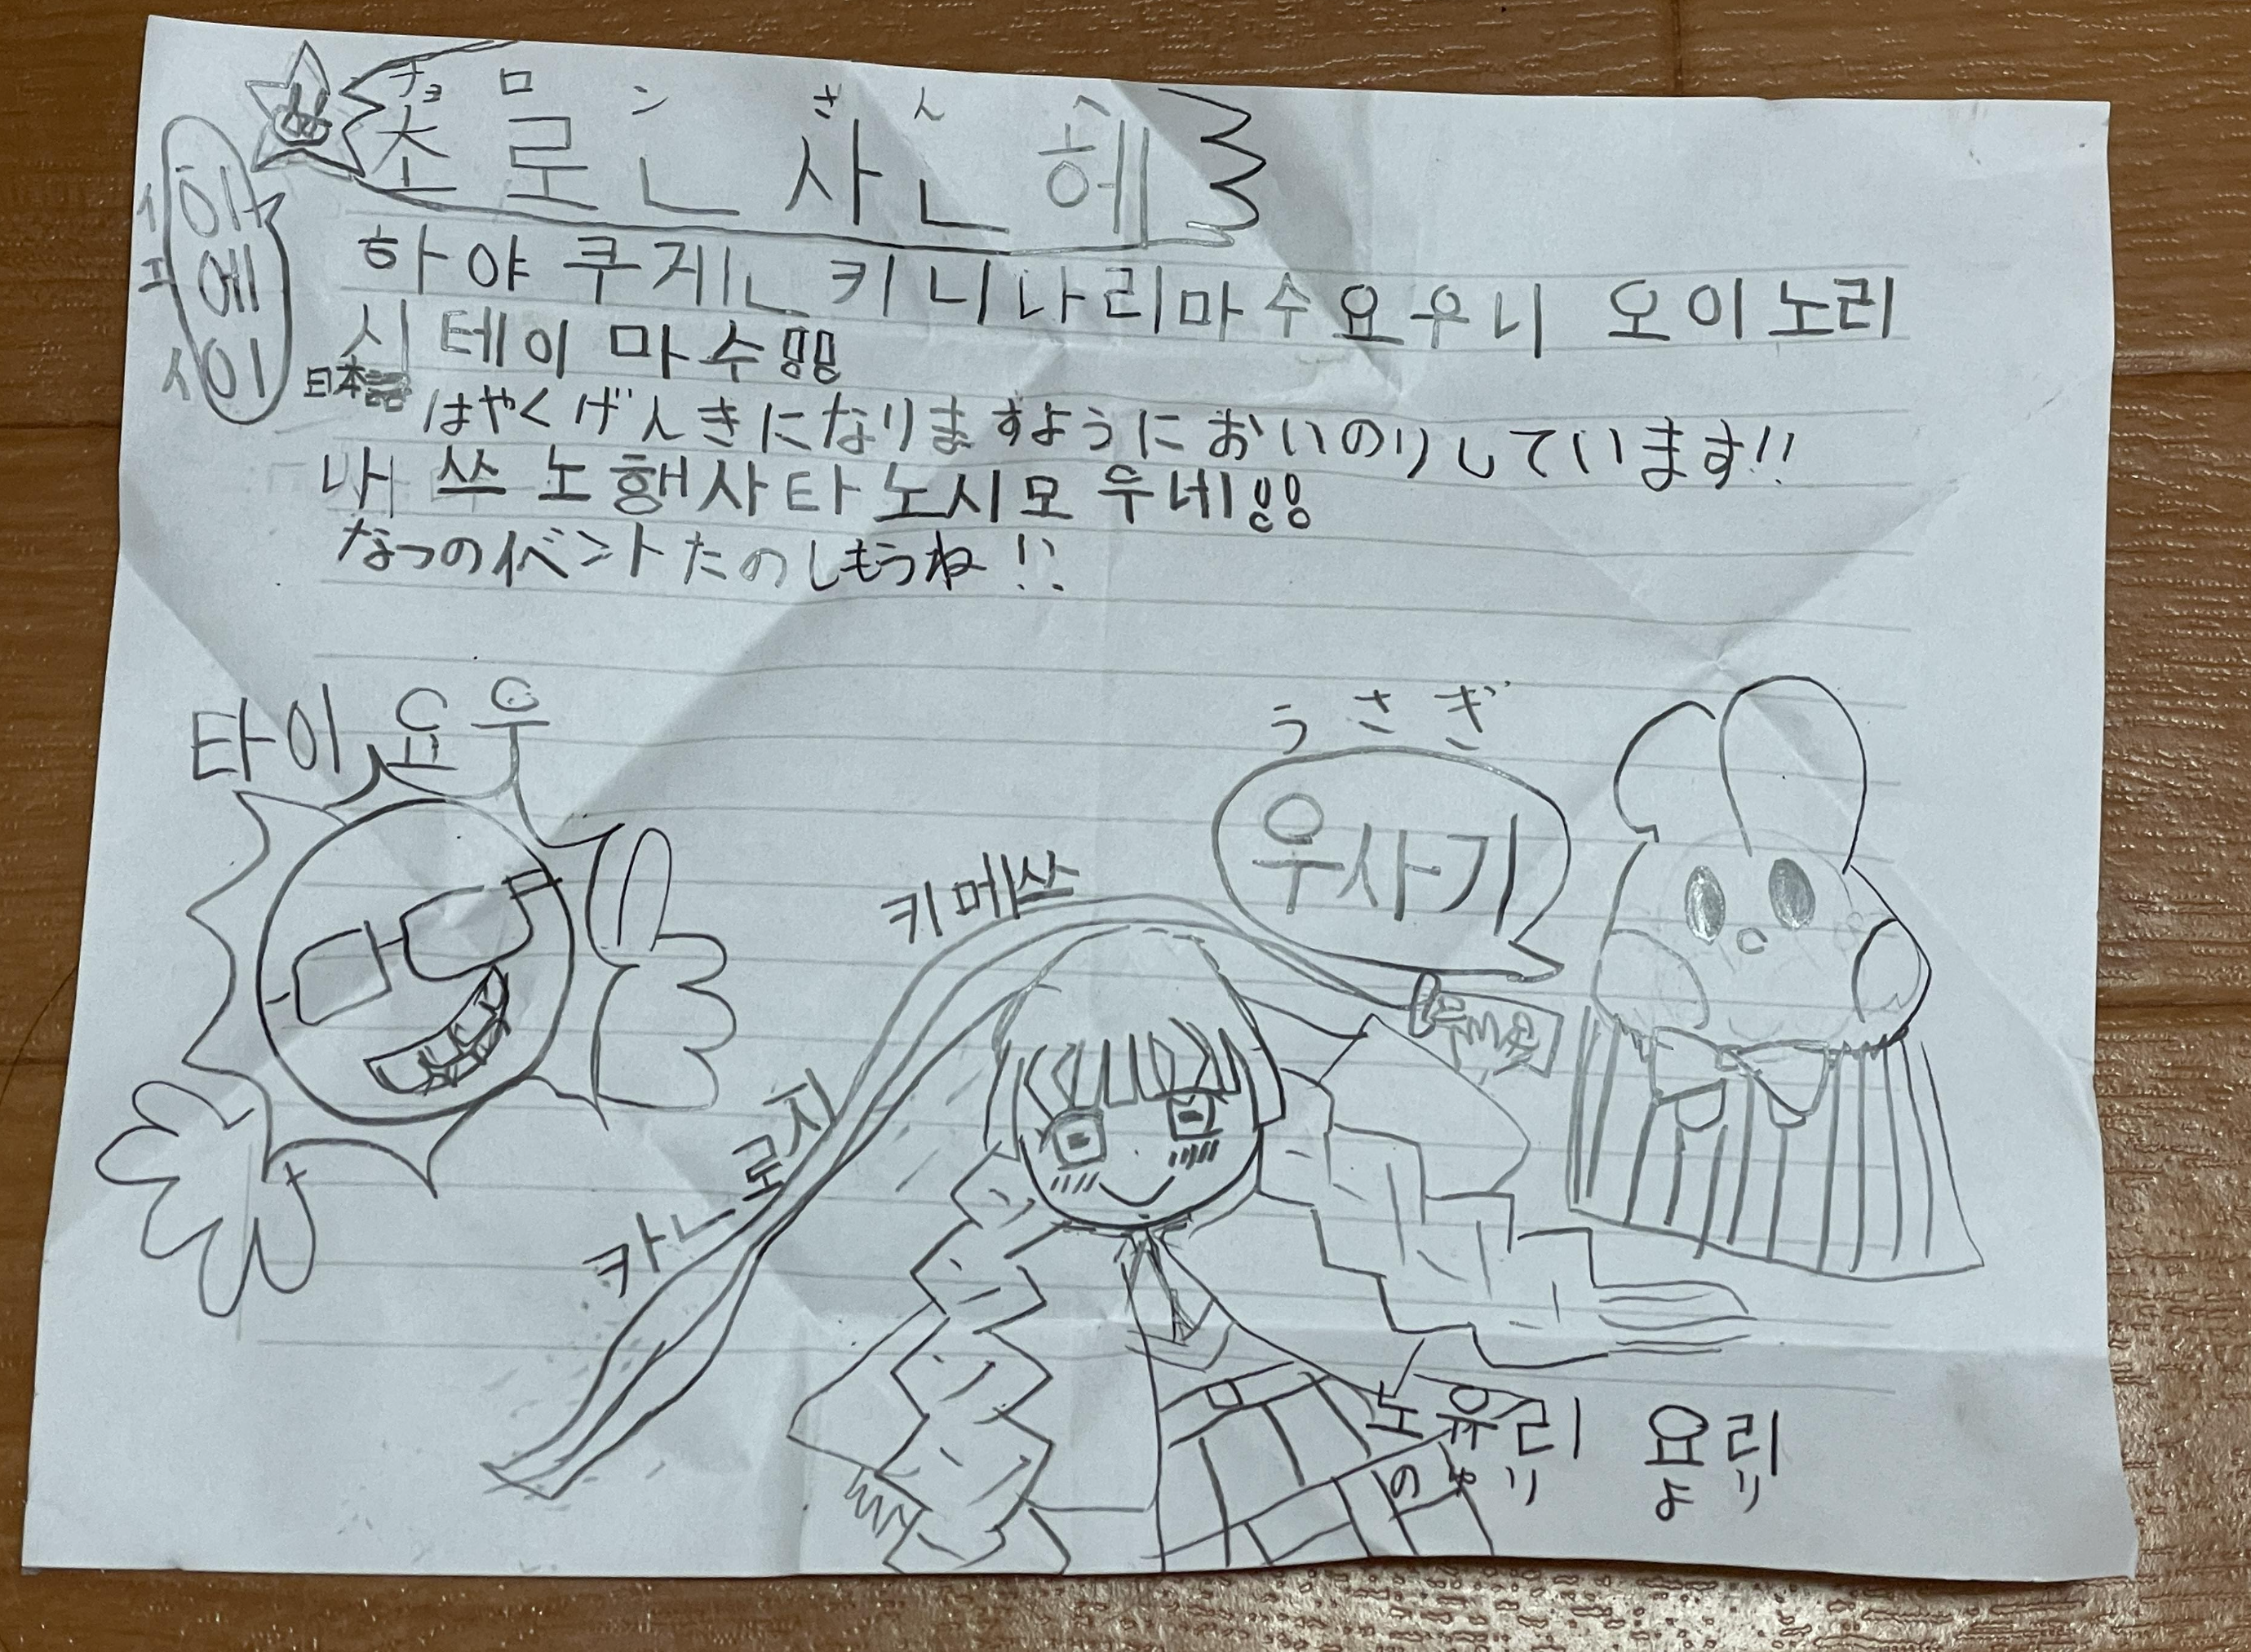 チョロンさんへ
초로ㄴ 사ㄴ 헤
이
에
이
하야쿠게ㄴ키니나리마수요우니 오이노리
시테이마수!!
日本語
はやくげんきになりますようにおいのりしています!!
나쓰노행사타노시모우네!!
なつのイベントたのしもうね!!
타이요우
うさぎ
우사기
키메쓰
카ㄴ로지
노유리 요리
のゆり より